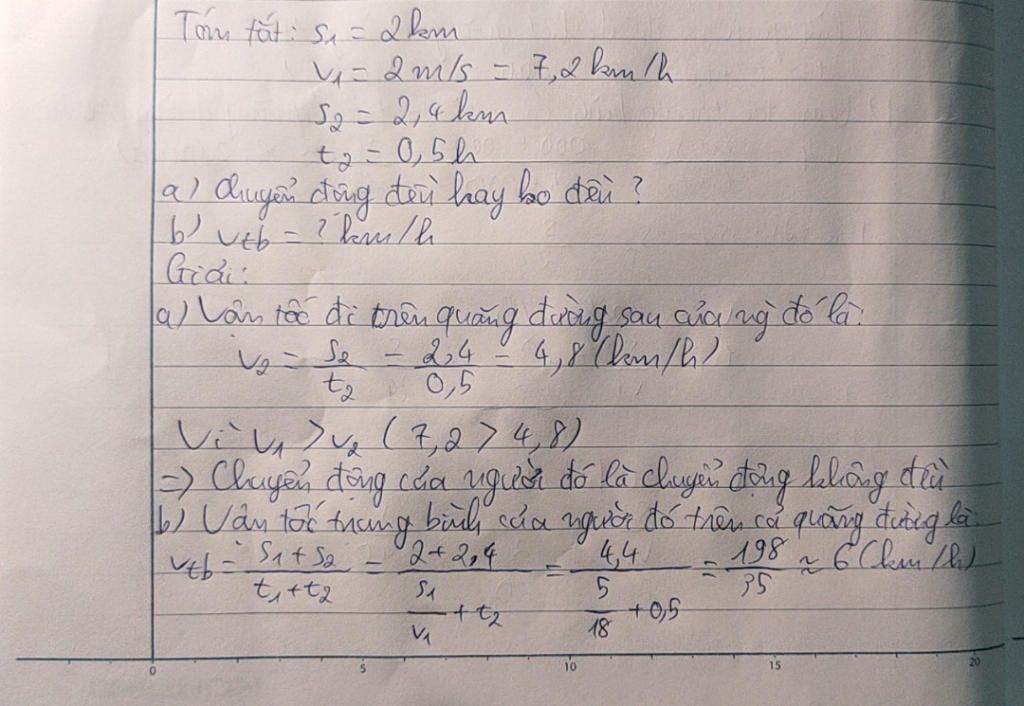 Tóm tắt: s₁ = 2km
v₁ = 2m/s = 7,2km/h
s₂ = 2,4km
t₂ = 0,5h
a) Chuyển động đều hay ko đều?
b) vtb = ? km/h
Giải:
a) Vận tốc đi trên quãng đường sau của ng` đó là:
v₂ = s₂/t₂ = 2,4/0,5 = 4,8 (km/h)
Vì v₁ > v₂ (7,2 > 4,8)
=> Chuyển động của người đó là chuyển động không đều
b) Vận tốc trung bình của người đó trên cả quãng đường là:
vtb = (s₁ + s₂)/(t₁ + t₂) = (2 + 2,4)/(s₁/v₁ + t₂) = 4,4/(5/18 + 0,5) = 198/35 ≈ 6 (km/h)
0 5 10 15 20